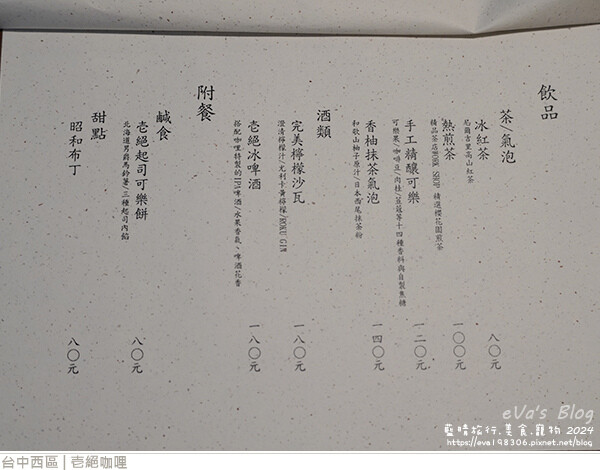 飲品
茶/氣泡
冰紅茶
尼爾吉里高山紅茶
八〇元
熱煎茶
精品茶店WORK SHOP 精選櫻花園煎茶
一〇〇元
手工精釀可樂
可樂果/咖啡豆/肉桂/荳蔻等十四種香料與自製焦糖
一二〇元
香柚抹茶氣泡
和歌山柚子原汁/日本西尾抹茶粉
一四〇元
酒類
完美檸檬沙瓦
澄清檸檬汁/尤利卡黃檸檬/ROKU GIN
一八〇元
壱絕冰啤酒
搭配咖哩特製的IPA啤酒/水果香氣、啤酒花香
一八〇元
附餐
鹹食
壱絕起司可樂餅
北海道男爵馬鈴薯/三種起司內餡
八〇元
甜點
昭和布丁
八〇元
eVa's Blog
藍晴旅行.美食.寵物 2024
https://eva198306.pixnet.net/blog
台中西區 | 壱絕咖哩